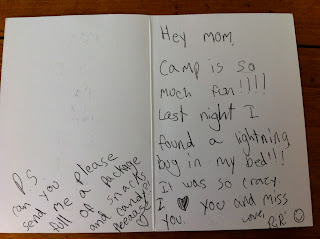 Hey Mom,
Camp is so
much fun!!!!
Last night I
found a lightning
bug in my bed!!!
It was so crazy
I ♥ you and miss
you.
Love,
P.S.
can you Please
send me a Package
full of
and snacks